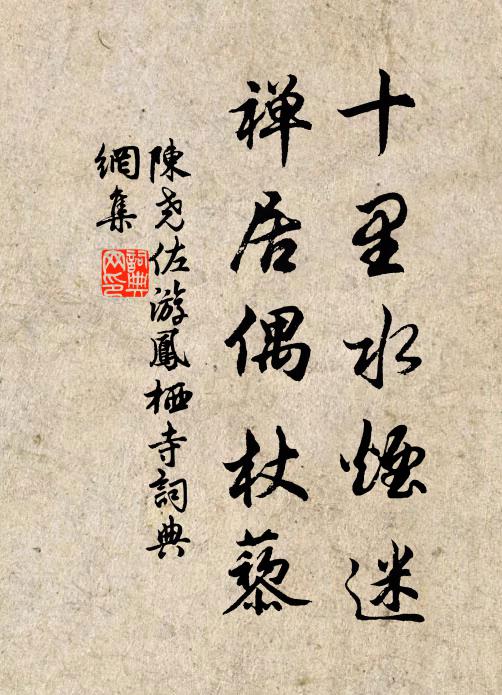 十里水煙迷
禅居偶杖藜
陳尭佐游鳳栖寺詞典
網集
詞典網印